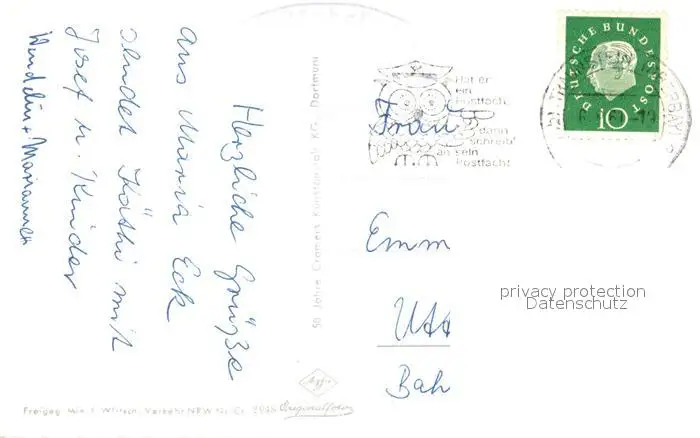 Herzliche Grüße
aus Maria Eck
sendet Käthi mit
Josef u. Kinder
50 Jahre Cramers Kunstanstalt KG., Dortmund
Hat er
ein
Postfach,
dann
schreib'
an sein
Postfach!
DEUTSCHE BUNDESPOST
10
Frau
Emm
Bah
privacy protection
Datenschutz
Agfa
Originalfoto
Freigeg. Min. f. Wirtsch. Verkehr NRW Nr. Cr.